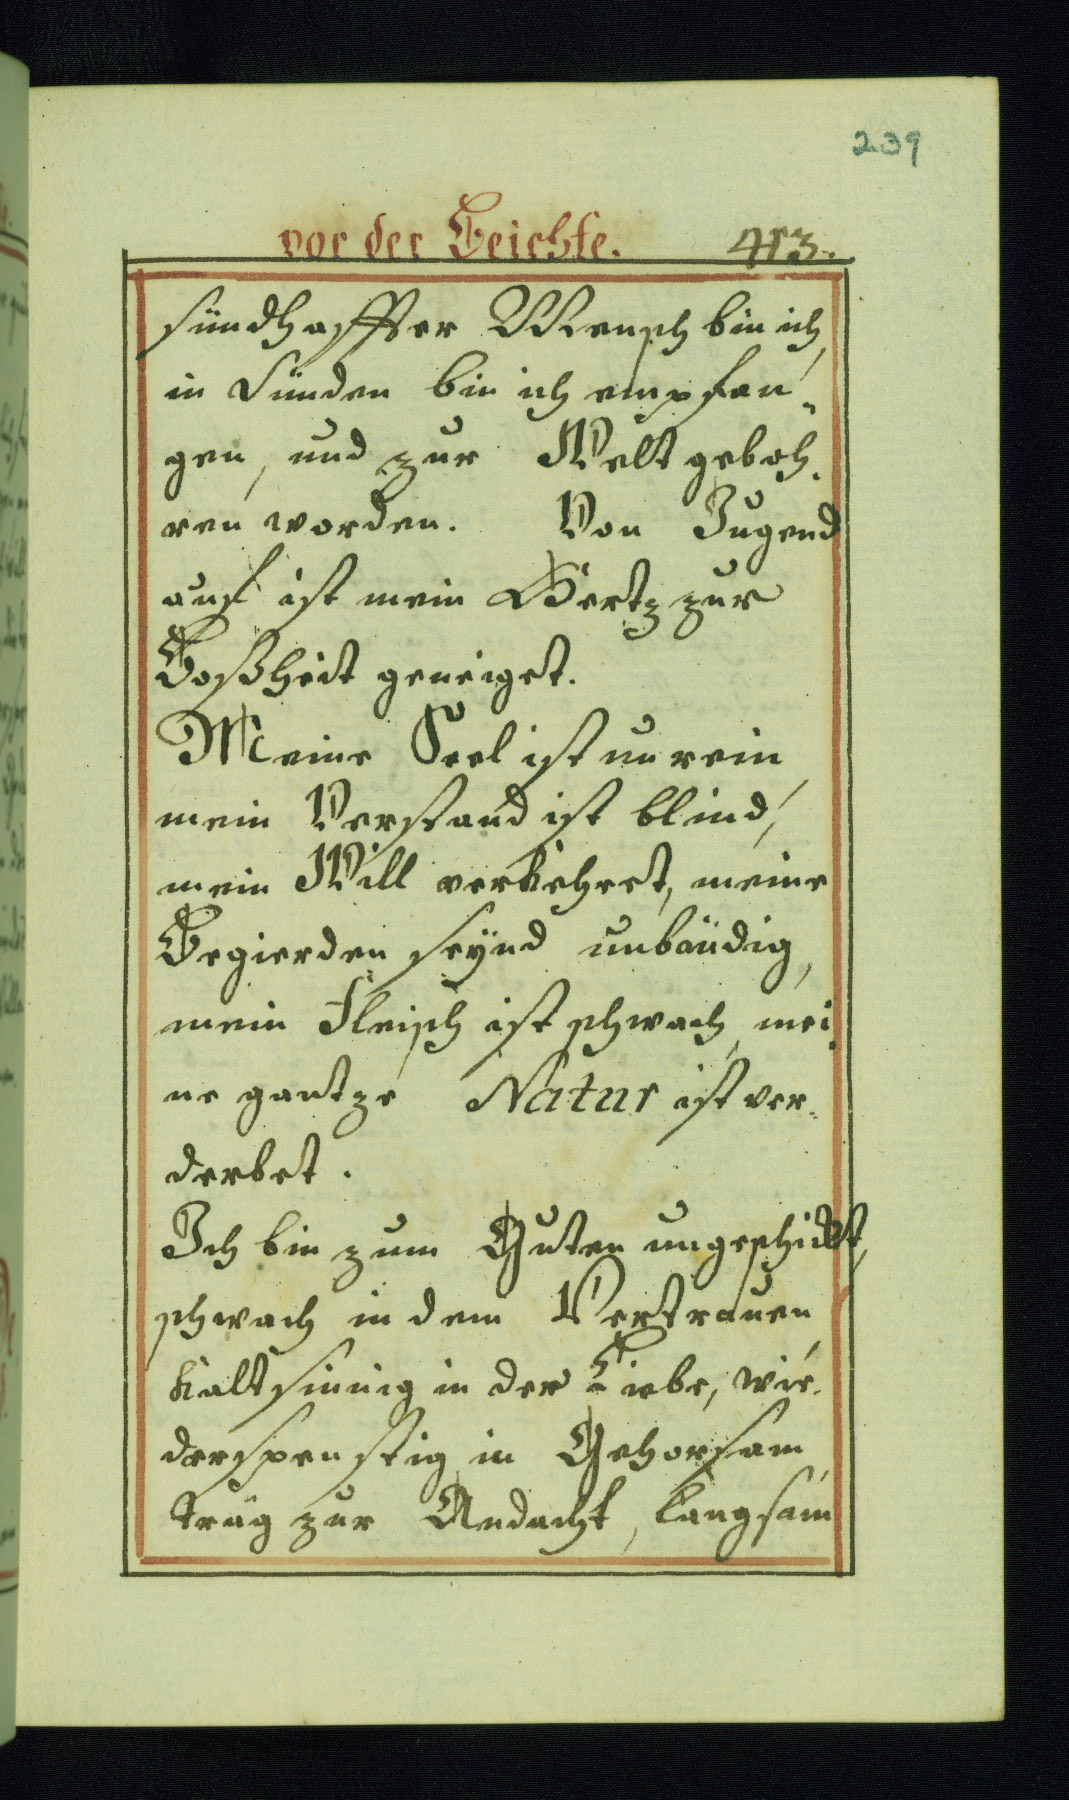 239
vor der Beichte. 473.
sündhaffter Mensch bin ich,
in Sünden bin ich empfan„
gen, und zur Welt geboh„
ren worden. Von Jugend
auf ist mein Hertz zur
Boßheit geneiget.
Meine Seel ist unrein,
mein Verstand ist blind,
mein Will verkehret, meine
Begierden seynd unbändig,
mein Fleisch ist schwach, mei„
ne gantze Natur ist ver„
derbet.
Ich bin zum Guten ungeschickt,
schwach in dem Vertrauen,
kaltsinnig in der Liebe, wie„
derspenstig in Gehorsam,
träg zur Andacht, langsam